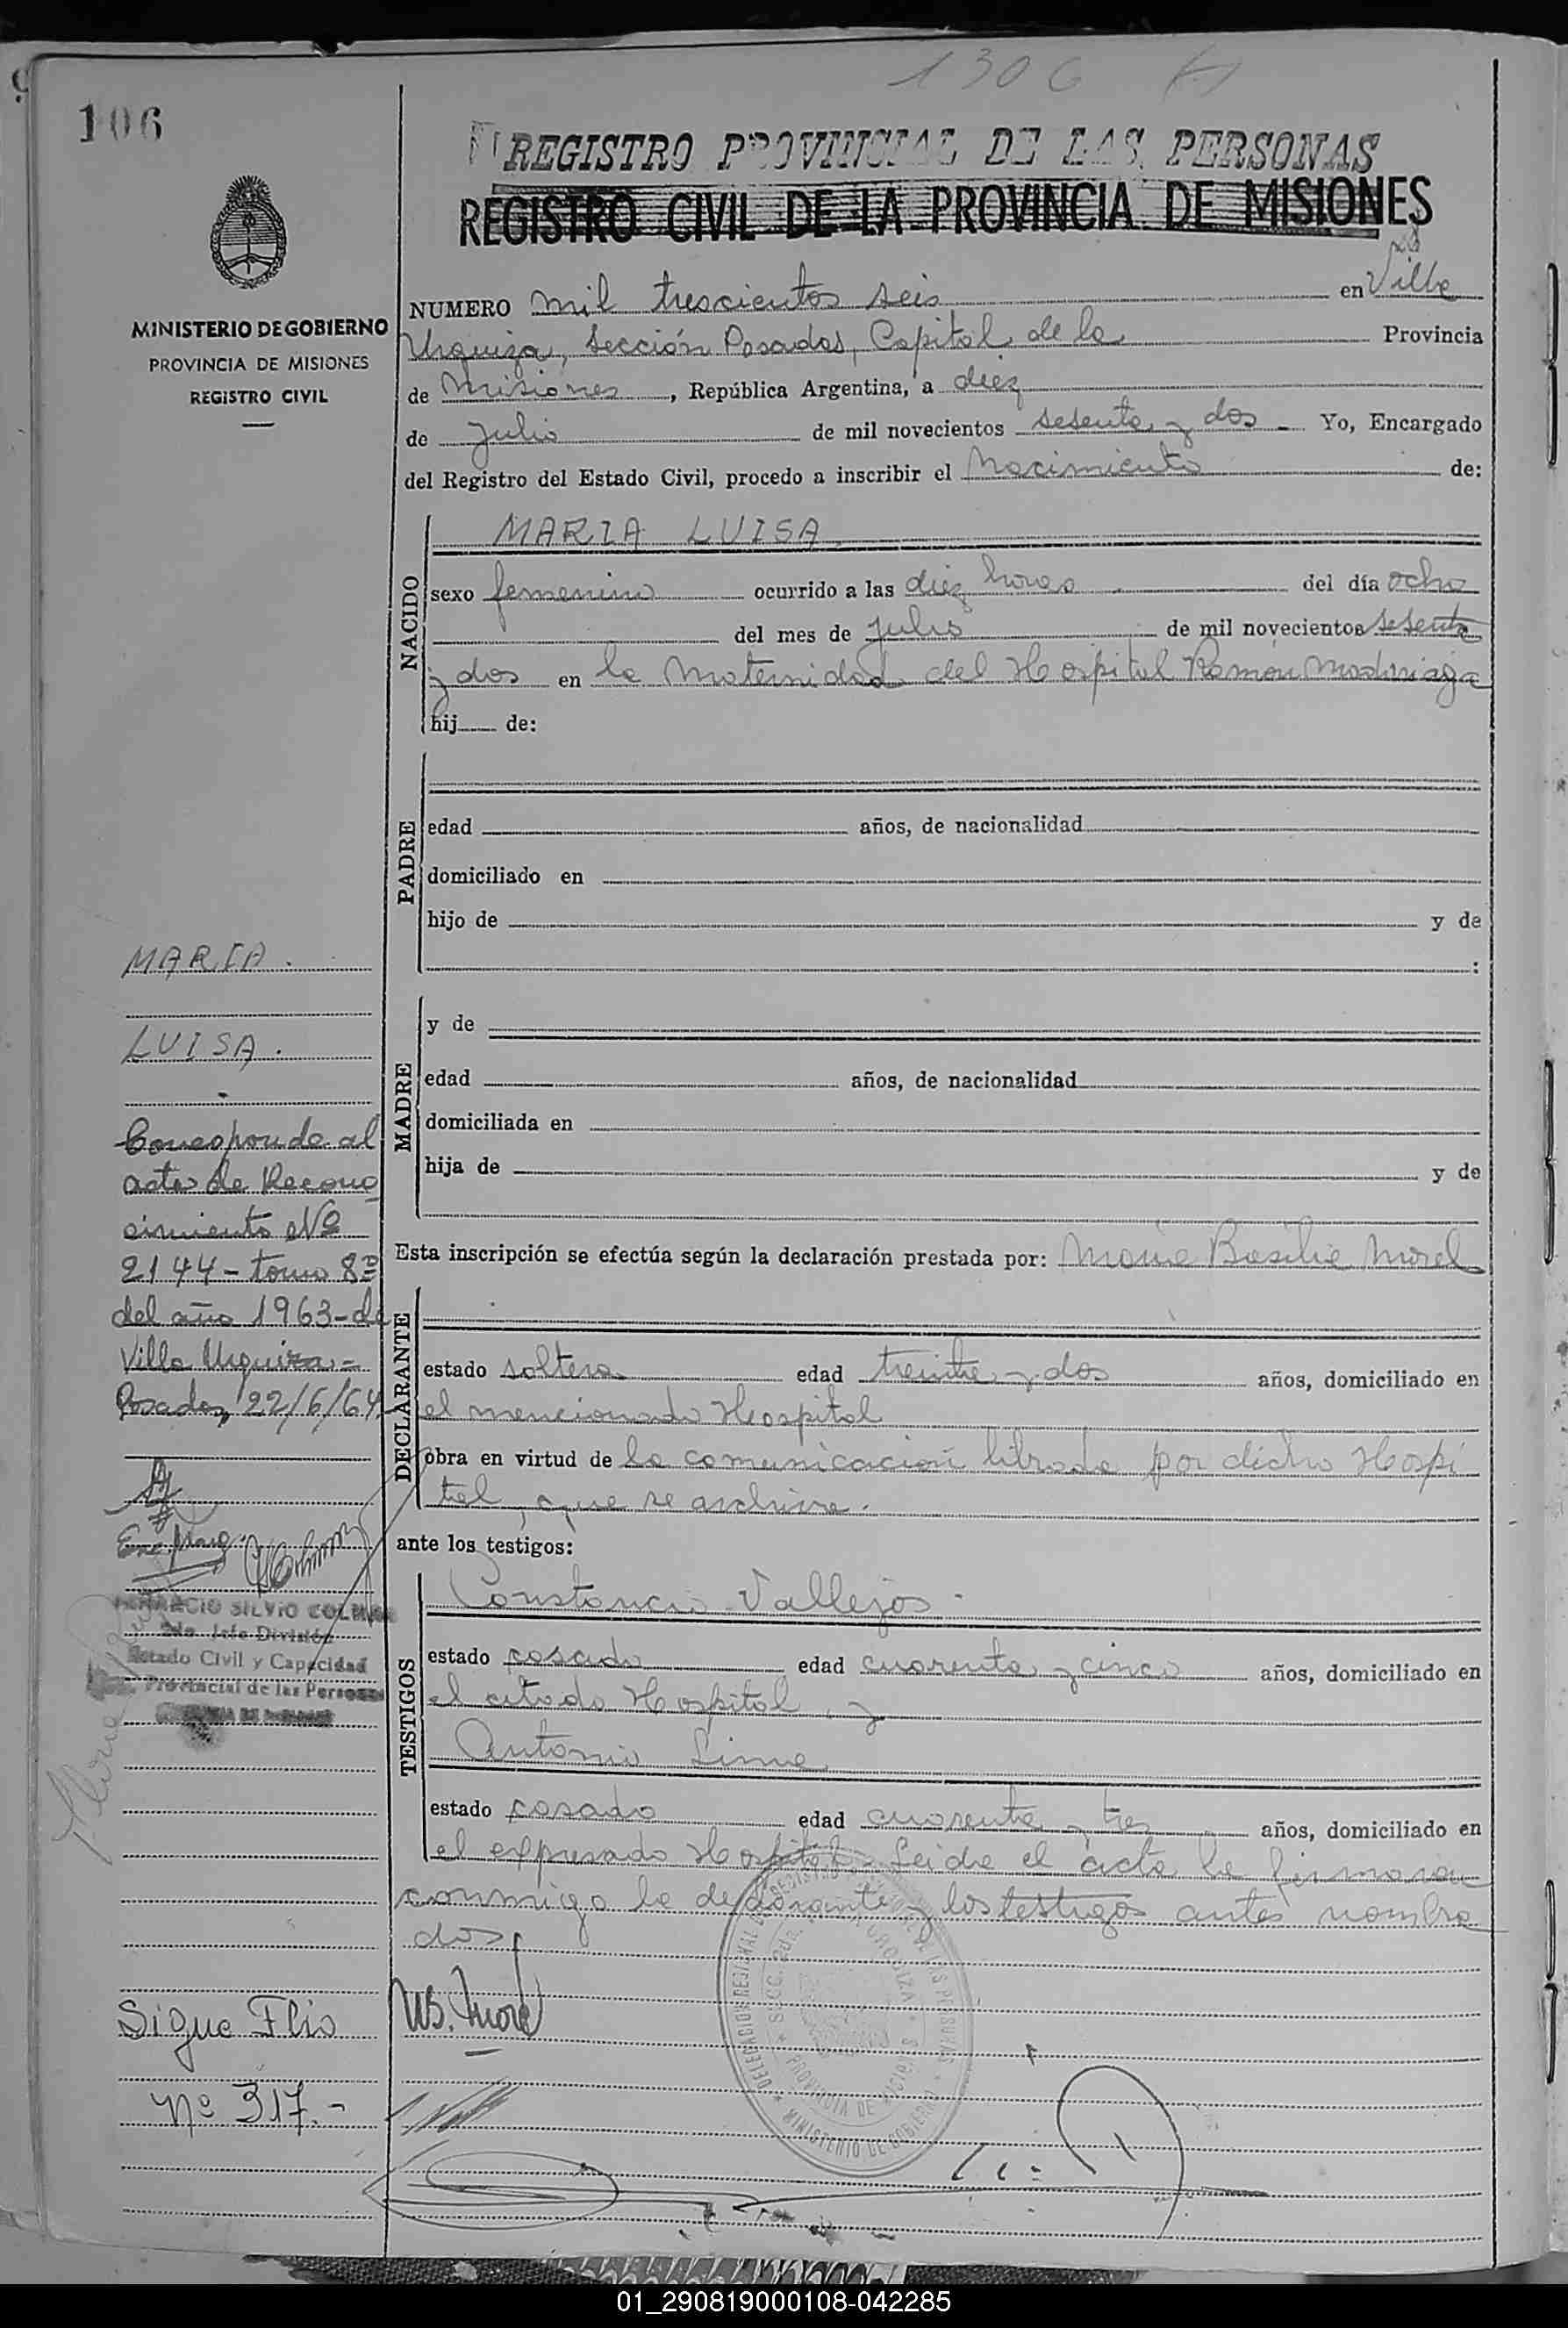 1306
106
REGISTRO PROVINCIAL DE LAS PERSONAS
REGISTRO CIVIL DE LA PROVINCIA DE MISIONES
MINISTERIO DE GOBIERNO
PROVINCIA DE MISIONES
REGISTRO CIVIL
NUMERO mil trescientos seis en Villa
Urquiza, Sección Posadas, Capital de la Provincia
de Misiones, República Argentina, a diez
de Julio de mil novecientos sesenta y dos Yo, Encargado
del Registro del Estado Civil, procedo a inscribir el Nacimiento de:
NACIDO
MARIA LUISA
sexo femenino ocurrido a las diez horas del día ocho
del mes de Julio de mil novecientos sesenta
y dos en la Maternidad del Hospital Ramón Madariaga
hij de:
PADRE
edad años, de nacionalidad
domiciliado en
hijo de y de
:
MADRE
y de
edad años, de nacionalidad
domiciliada en
hija de y de
Esta inscripción se efectúa según la declaración prestada por: Morel
DECLARANTE
estado soltera edad treinta y dos años, domiciliado en
el mencionado Hospital
obra en virtud de la comunicación librada por dicho Hospi
tal, que se archiva.
ante los testigos:
TESTIGOS
Constancio Vallejos
estado casado edad cuarenta y cinco años, domiciliado en
el citado Hospital, y
Antonio Lima
estado casado edad cuarenta y tres años, domiciliado en
el expresado Hospital. Leida el acta la firmaron
conmigo la declarante y los testigos antes nombra
dos.
MARIA.
LUISA.
Corresponde al
acta de Recono
cimiento Nº
2144 - tomo 8º
del año 1963 - de
Villa Urquiza =
Posadas, 22/6/64
SILVIO
2do. Jefe División
Estado Civil y Capacidad
Provincial de las Personas
Sigue Flio
Nº 317.-
MINISTERIO DE GOBIERNO
PROVINCIA DE MISIONES
01_290819000108-042285